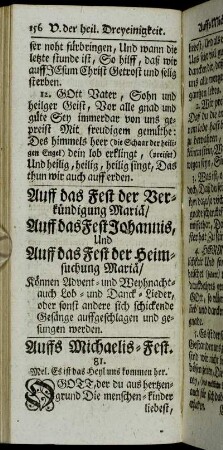 156 V. der heil. Dreyeinigkeit.
ser noht fürbringen, Und wann die
letzte stunde ist, So hilff, daß wir
auff JEsum Christ Getrost und selig
sterben.
12. GOtt Vater, Sohn und
heilger Geist, Vor alle gnad und
güte Sey immerdar von uns ge-
preist Mit freudigem gemüthe:
Des himmels heer (die Schaar der heili-
gen Engel) dein lob erklingt, (preiset)
Und heilig, heilig, heilig singt, Das
thun wir auch auff erden.
Auff das Fest der Ver-
kündigung Mariä/
Auff das Fest Johannis,
Und
Auff das Fest der Heim-
suchung Mariä/
Können Advent- und Weyhnacht-
auch Lob- und Danck-Lieder,
oder sonst andere sich schickende
Gesänge auffgeschlagen und ge-
sungen werden.
Auffs Michaelis-Fest.
81.
Mel. Es ist das Heyl uns kommen her.
O GOTT, der du aus hertzen-
grund Die menschen-kinder
liebest,